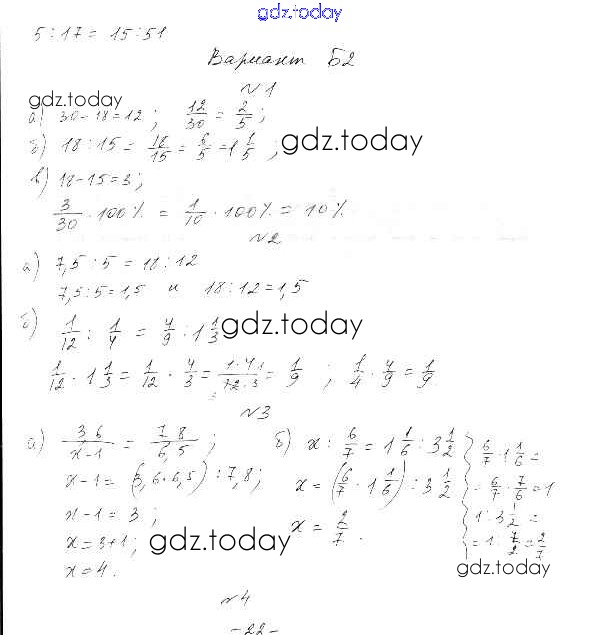 gdz.today
5 : 17 = 15 : 51
Вариант Б2
№1
gdz.today
а) 30-18=12 ; 12/30 = 2/5 ;
б) 18 : 15 = 18/15 = 6/5 = 1 1/5 ; gdz.today
в) 18-15=3 ;
3/30 · 100% = 1/10 · 100% = 10%
№2
а) 7,5 : 5 = 18 : 12
7,5 : 5 = 1,5 и 18 : 12 = 1,5
б) 1/12 : 1/4 = 4/9 : 1 1/3 gdz.today
1/12 · 1 1/3 = 1/12 · 4/3 = 1·4/12·3 = 1/9 ; 1/4 · 4/9 = 1/9.
№3
а) 36/x-1 = 78/6,5 ; б) x : 6/7 = 1 1/6 : 3 1/2 { 6/7 · 1 1/6 =
x-1 = (3,6·6,5) : 7,8 ; x = (6/7 · 1 1/6) : 3 1/2 = 6/7 · 7/6 = 1
x-1 = 3 ; x = 2/7 . 1 : 3 1/2 =
x = 3+1 ; gdz.today = 1 · 7/2 = 2/7.
x = 4. gdz.today
№4
-22-